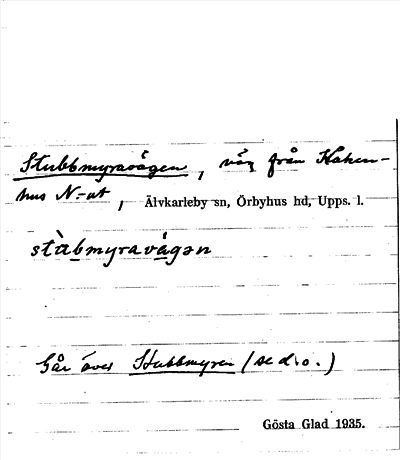 Stubbmyravägen, väg från Haken-
hus N.-ut, Älvkarleby sn, Örbyhus hd, Upps. l.
stùbmyravágən
Går över Stubbmyren (se d. o.)
Gösta Glad 1935.